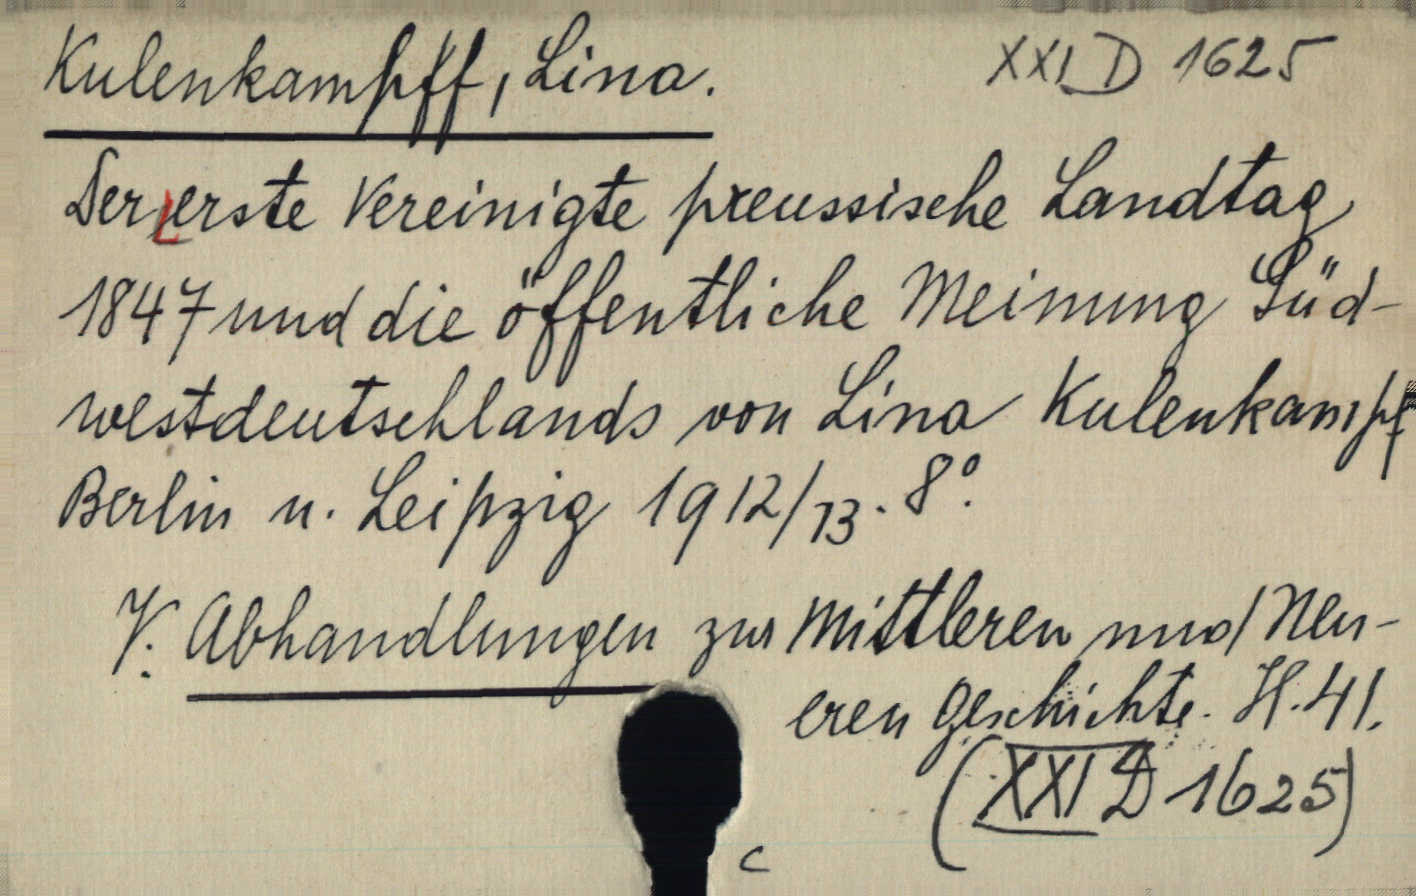 Kulenkampff, Lina.
XXI D 1625
Der erste Vereinigte preussische Landtag
1847 und die öffentliche Meinung Süd-
westdeutschlands von Lina Kulenkampf
Berlin u. Leipzig 1912/13. 8°.
V. Abhandlungen zur Mittleren und Neu-
eren Geschichte. H. 41.
(XXI D 1625)
c